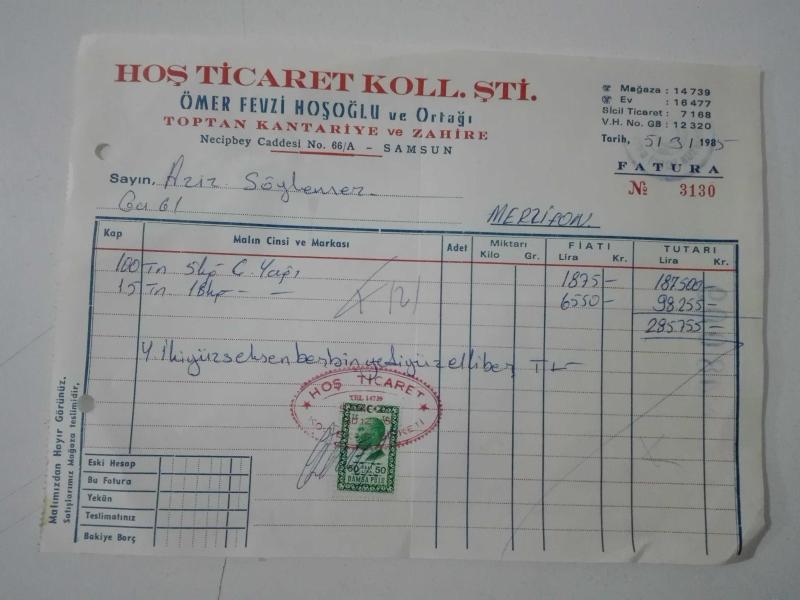 HOŞ TİCARET KOLL. ŞTİ.
ÖMER FEVZİ HOŞOĞLU ve Ortağı
TOPTAN KANTARİYE ve ZAHİRE
Necipbey Caddesi No. 66/A - SAMSUN
Mağaza : 14 739
Ev : 16 477
Sicil Ticaret : 7 168
V.H. No. GB : 12 320
Tarih, 5/3/1985
FATURA
№ 3130
Sayın, Aziz Söylemer
MERZİFON
Kap Malın Cinsi ve Markası Adet Miktarı Kilo Gr. FİATI Lira Kr. TUTARI Lira Kr.
100 Tn 5 kg Ç. Yağı 1875 - 187500 -
15 Tn 18 kg - - 6550 - 98.255 -
285.755 -
Y. İkiyüzseksenbeşbinyediyüzellibeş TL -
HOŞ TİCARET
TEL. 14739
50 50
DAMGA PULU
Eski Hesap
Bu Fatura
Yekün
Teslimatınız
Bakiye Borç
Malımızdan Hayır Görünüz.
Satışlarımız Mağaza teslimidir.